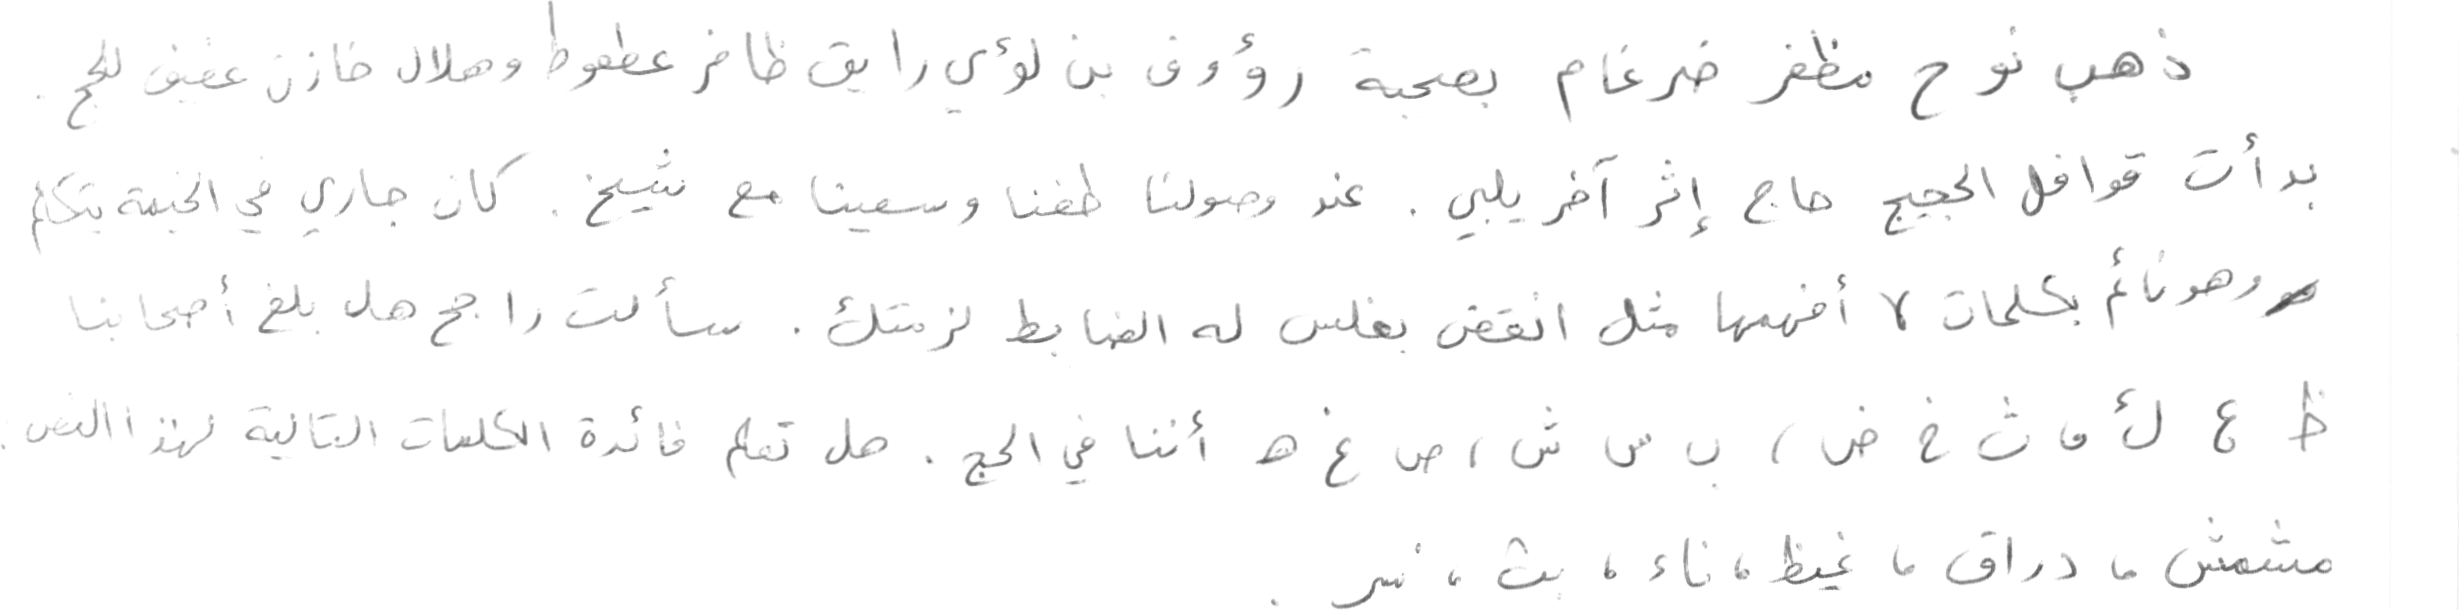 ذهب نوح مظفر ضرغام بصحبة رؤوف بن لؤي رايق ظافر عطعوط وهلال خازن عفيف للحج.
بدأت قوافل الحجيج حاج إثر آخر يلبي. عند وصولنا طفنا وسعينا مع شيخ. كان جاري في الخيمة يتكلم
وهو نائم بكلمات لا أفهمها مثل انقض بغلس له الضابط لزمتك. سألت راجح هل بلغ أصحابنا
ظ ع ك ق ث خ ض، ب س ش، ص غ ه أننا في الحج. هل تعلم فائدة الكلمات التالية لهذا النص.
مشمش، دراق، غيظ، ناء، بث، نسر.